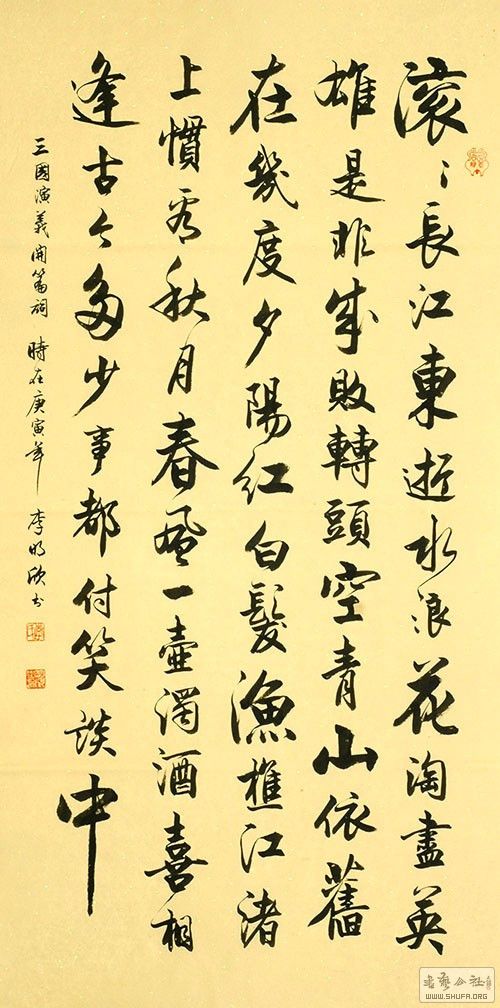 滚〻長江東逝水浪花淘盡英
雄是非成敗轉頭空青山依舊
在幾度夕陽紅白髮漁樵江渚
上慣看秋月春風一壺濁酒喜相
逢古今多少事都付笑談中
三國演義開篇詞 時在庚寅年 李明欣書
書法公社
WWW.SHUFA.ORG